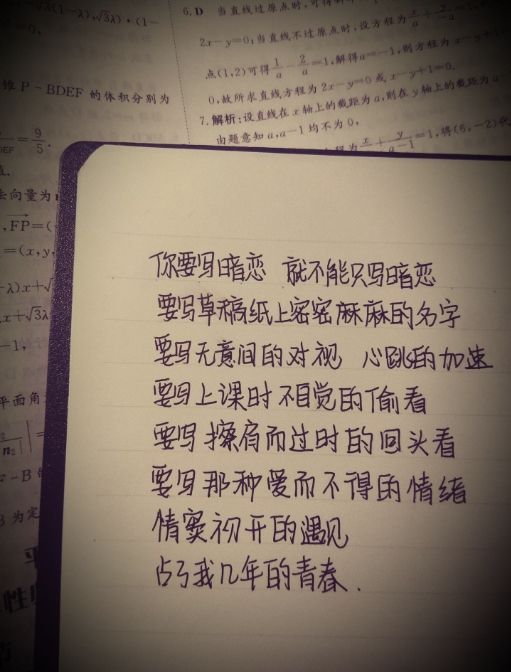 6. D 当直线过原点时,可得斜
2x-y=0;当直线不过原点时,设方程为
点(1,2)可得1/a-2/a=1,解得a=-1,则方程为x-y+1
0,故所求直线方程为2x-y=0或x-y+1=0.
7. 解析:设直线在x轴上的截距为a,则在y轴上的截距为a-
由题意知a,a-1均不为0,
程为x/a+y/(a-1)=1,将(6,-2)
锥P-BDEF的体积分别为
9/5
法向量为
,FP=(
=(x,y,
平面角
为定
你要写暗恋 就不能只写暗恋
要写草稿纸上密密麻麻的名字
要写无意间的对视 心跳的加速
要写上课时不自觉的偷看
要写擦肩而过时的回头看
要写那种爱而不得的情绪
情窦初开的遇见
占了我几年的青春.